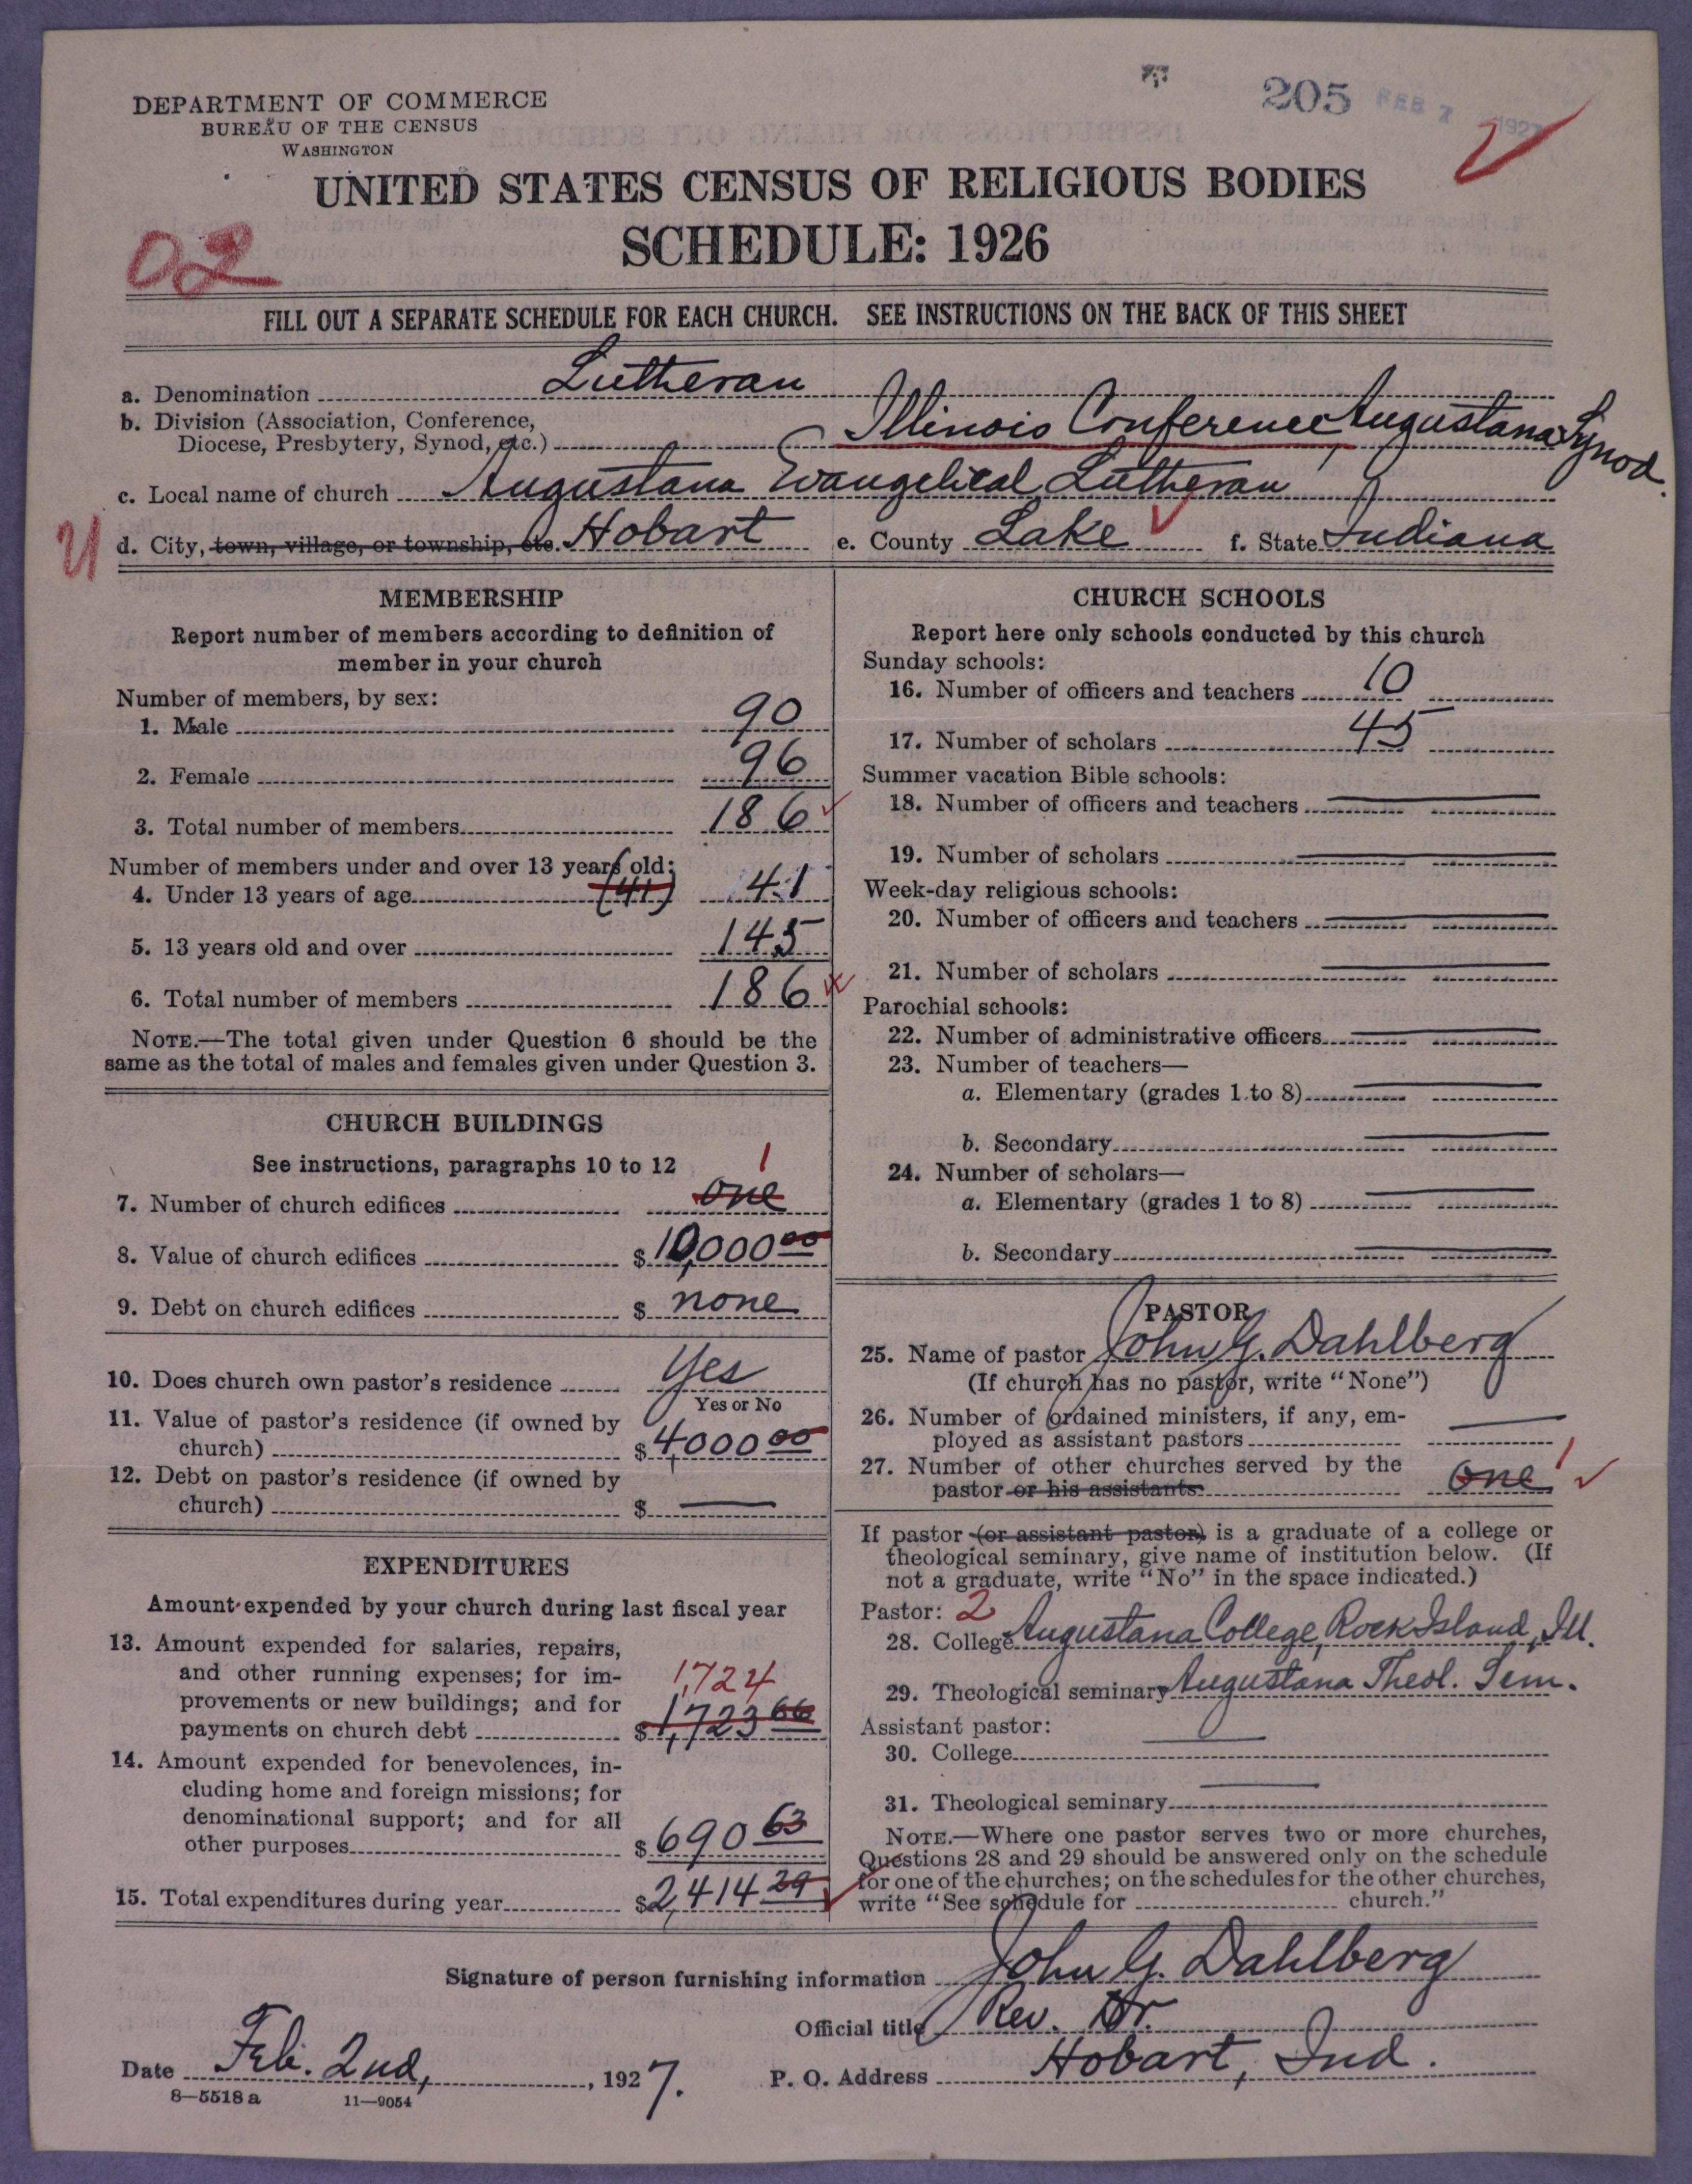 205 FEB 7 1927
DEPARTMENT OF COMMERCE
BUREAU OF THE CENSUS
WASHINGTON
UNITED STATES CENSUS OF RELIGIOUS BODIES
SCHEDULE: 1926
02
FILL OUT A SEPARATE SCHEDULE FOR EACH CHURCH. SEE INSTRUCTIONS ON THE BACK OF THIS SHEET
a. Denomination Lutheran
b. Division (Association, Conference,
Diocese, Presbytery, Synod, etc.) Illinois Conference, Augustana Synod.
c. Local name of church Augustana Evangelical Lutheran
d. City, town, village, or township, etc. Hobart e. County Lake f. State Indiana
MEMBERSHIP
Report number of members according to definition of
member in your church
Number of members, by sex:
1. Male 90
2. Female 96
3. Total number of members 186
Number of members under and over 13 years old:
4. Under 13 years of age (41) 41
5. 13 years old and over 145
6. Total number of members 186
NOTE.—The total given under Question 6 should be the
same as the total of males and females given under Question 3.
CHURCH BUILDINGS
See instructions, paragraphs 10 to 12 1
7. Number of church edifices one
8. Value of church edifices $10,000 00
9. Debt on church edifices $ none
10. Does church own pastor's residence Yes
Yes or No
11. Value of pastor's residence (if owned by
church) $4,000 00
12. Debt on pastor's residence (if owned by
church) $
EXPENDITURES
Amount expended by your church during last fiscal year
13. Amount expended for salaries, repairs,
and other running expenses; for im-
1,724
provements or new buildings; and for
payments on church debt $1,723 66
14. Amount expended for benevolences, in-
cluding home and foreign missions; for
denominational support; and for all
other purposes $690 63
15. Total expenditures during year $2,414 29
CHURCH SCHOOLS
Report here only schools conducted by this church
Sunday schools:
16. Number of officers and teachers 10
17. Number of scholars 45
Summer vacation Bible schools:
18. Number of officers and teachers
19. Number of scholars
Week-day religious schools:
20. Number of officers and teachers
21. Number of scholars
Parochial schools:
22. Number of administrative officers
23. Number of teachers—
a. Elementary (grades 1 to 8)
b. Secondary
24. Number of scholars—
a. Elementary (grades 1 to 8)
b. Secondary
PASTOR
25. Name of pastor John G. Dahlberg
(If church has no pastor, write "None")
26. Number of ordained ministers, if any, em-
ployed as assistant pastors
27. Number of other churches served by the
pastor or his assistants one 1
If pastor (or assistant pastor) is a graduate of a college or
theological seminary, give name of institution below. (If
not a graduate, write "No" in the space indicated.)
Pastor: 2
28. College Augustana College, Rock Island, Ill.
29. Theological seminary Augustana Theol. Sem.
Assistant pastor:
30. College
31. Theological seminary
NOTE.—Where one pastor serves two or more churches,
Questions 28 and 29 should be answered only on the schedule
for one of the churches; on the schedules for the other churches,
write "See schedule for church."
Signature of person furnishing information John G. Dahlberg
Official title Rev. Dr.
Date Feb. 2nd, 1927. P. O. Address Hobart, Ind.
8—5518 a 11—9054